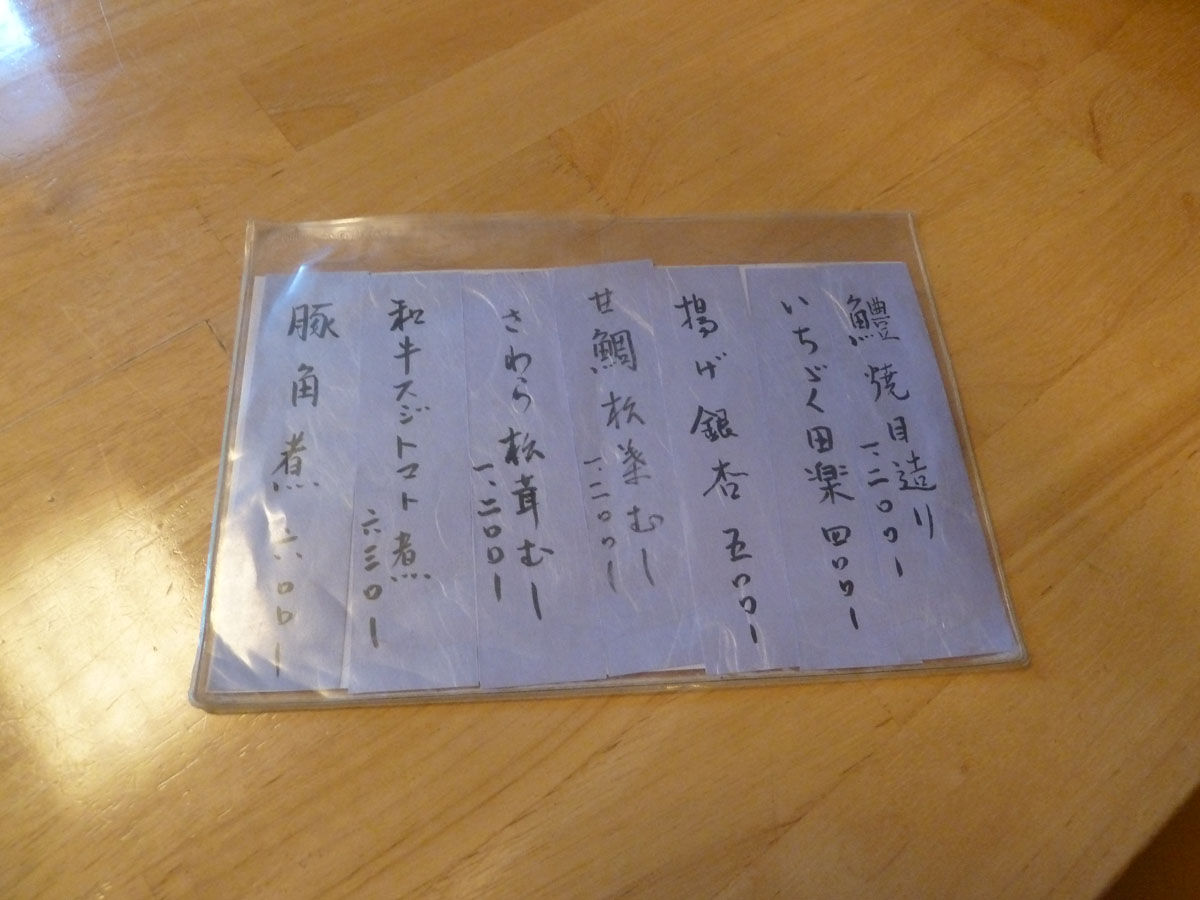 鱧焼目造り
一、二〇〇ー
いちゞく田楽 四〇〇ー
揚げ銀杏 五〇〇ー
甘鯛松葉むし
一、二〇〇ー
さわら松茸むし
一、二〇〇ー
和牛スジトマト煮
六三〇ー
豚角煮 六〇〇ー